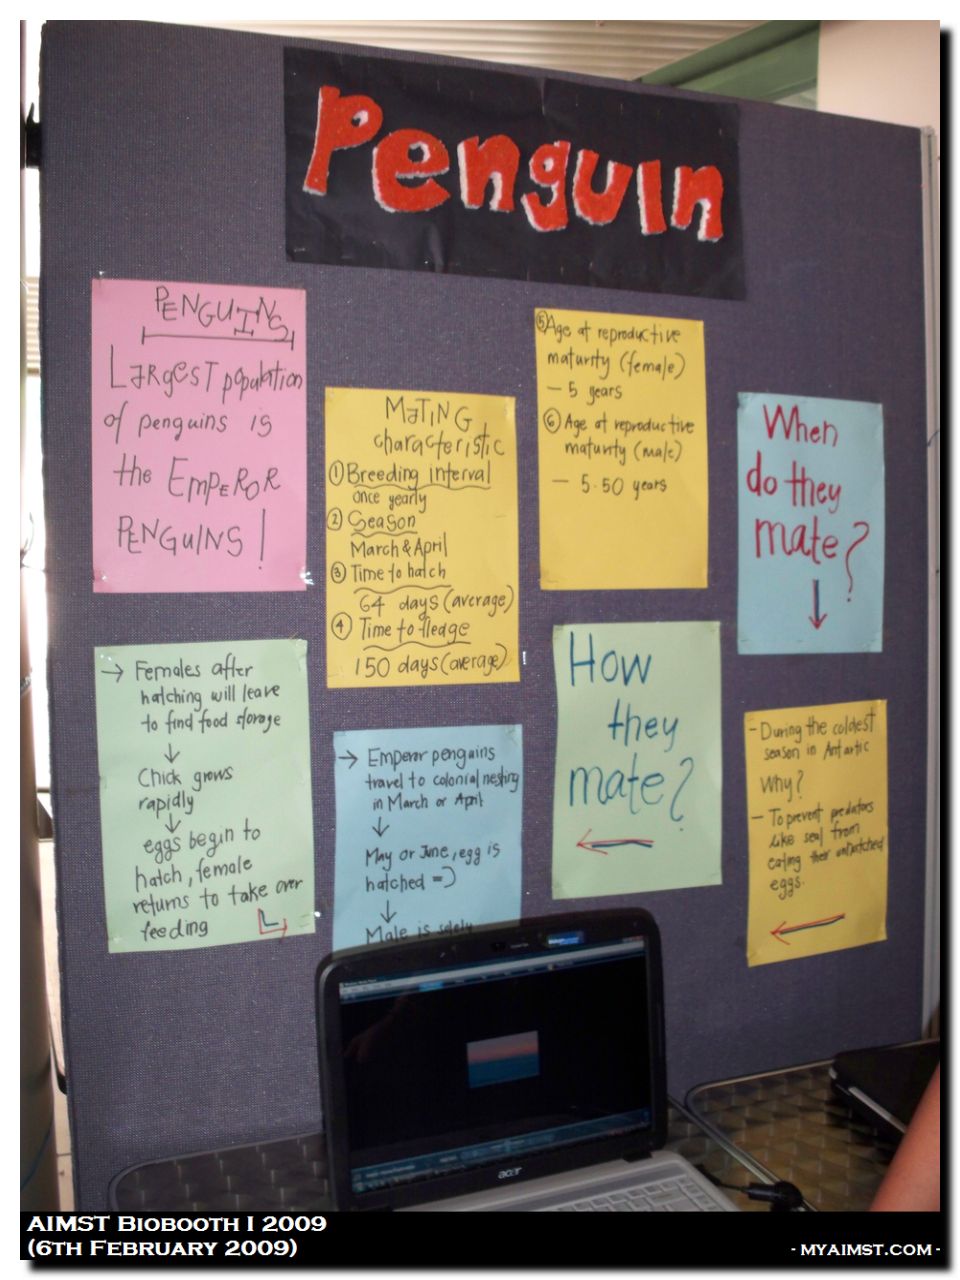 Penguin
PENGUINS
LARGEST population
of penguins is
the EMPEROR
PENGUINS!
MATING
characteristic
① Breeding interval
once yearly
② Season
March & April
③ Time to hatch
64 days (average)
④ Time to fledge
150 days (average)
⑤ Age at reproductive
maturity (female)
- 5 years
⑥ Age at reproductive
maturity (male)
- 5.50 years
When
do they
mate?
↓
→ Females after
hatching will leave
to find food storage
↓
Chick grows
rapidly
↓
eggs begin to
hatch, female
returns to take over
feeding
→ Emperor penguins
travel to colonial nesting
in March or April
↓
May or June, egg is
hatched =)
↓
Male is solely
How
they
mate?
←
- During the coldest
season in Antartic
Why?
- To prevent predators
like seal from
eating their unhatched
eggs.
←
acer
AIMST BIOBOOTH I 2009
(6TH FEBRUARY 2009)
- MYAIMST.COM -